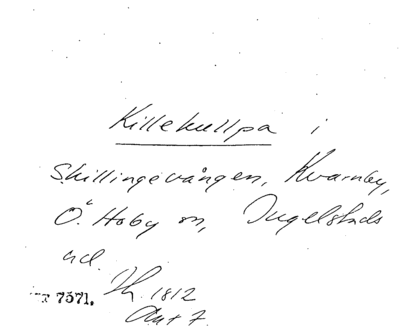 Killekullpa i
Skillingevången, Kvarnby,
Ö. Hoby sn, Ingelstads
hd.
1812
Akt 7.
7571.